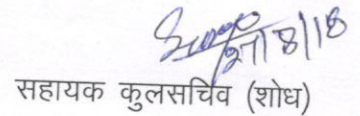 27/8/18
सहायक कुलसचिव (शोध)